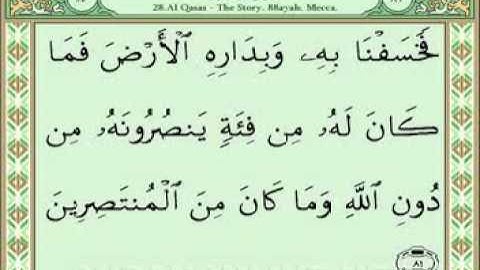 28.Al Qasas - The Story. 88ayah. Mecca.
فَخَسَفْنَا بِهِۦ وَبِدَارِهِ ٱلْأَرْضَ فَمَا
كَانَ لَهُۥ مِن فِئَةٍۢ يَنصُرُونَهُۥ مِن
دُونِ ٱللَّهِ وَمَا كَانَ مِنَ ٱلْمُنتَصِرِينَ
٨١